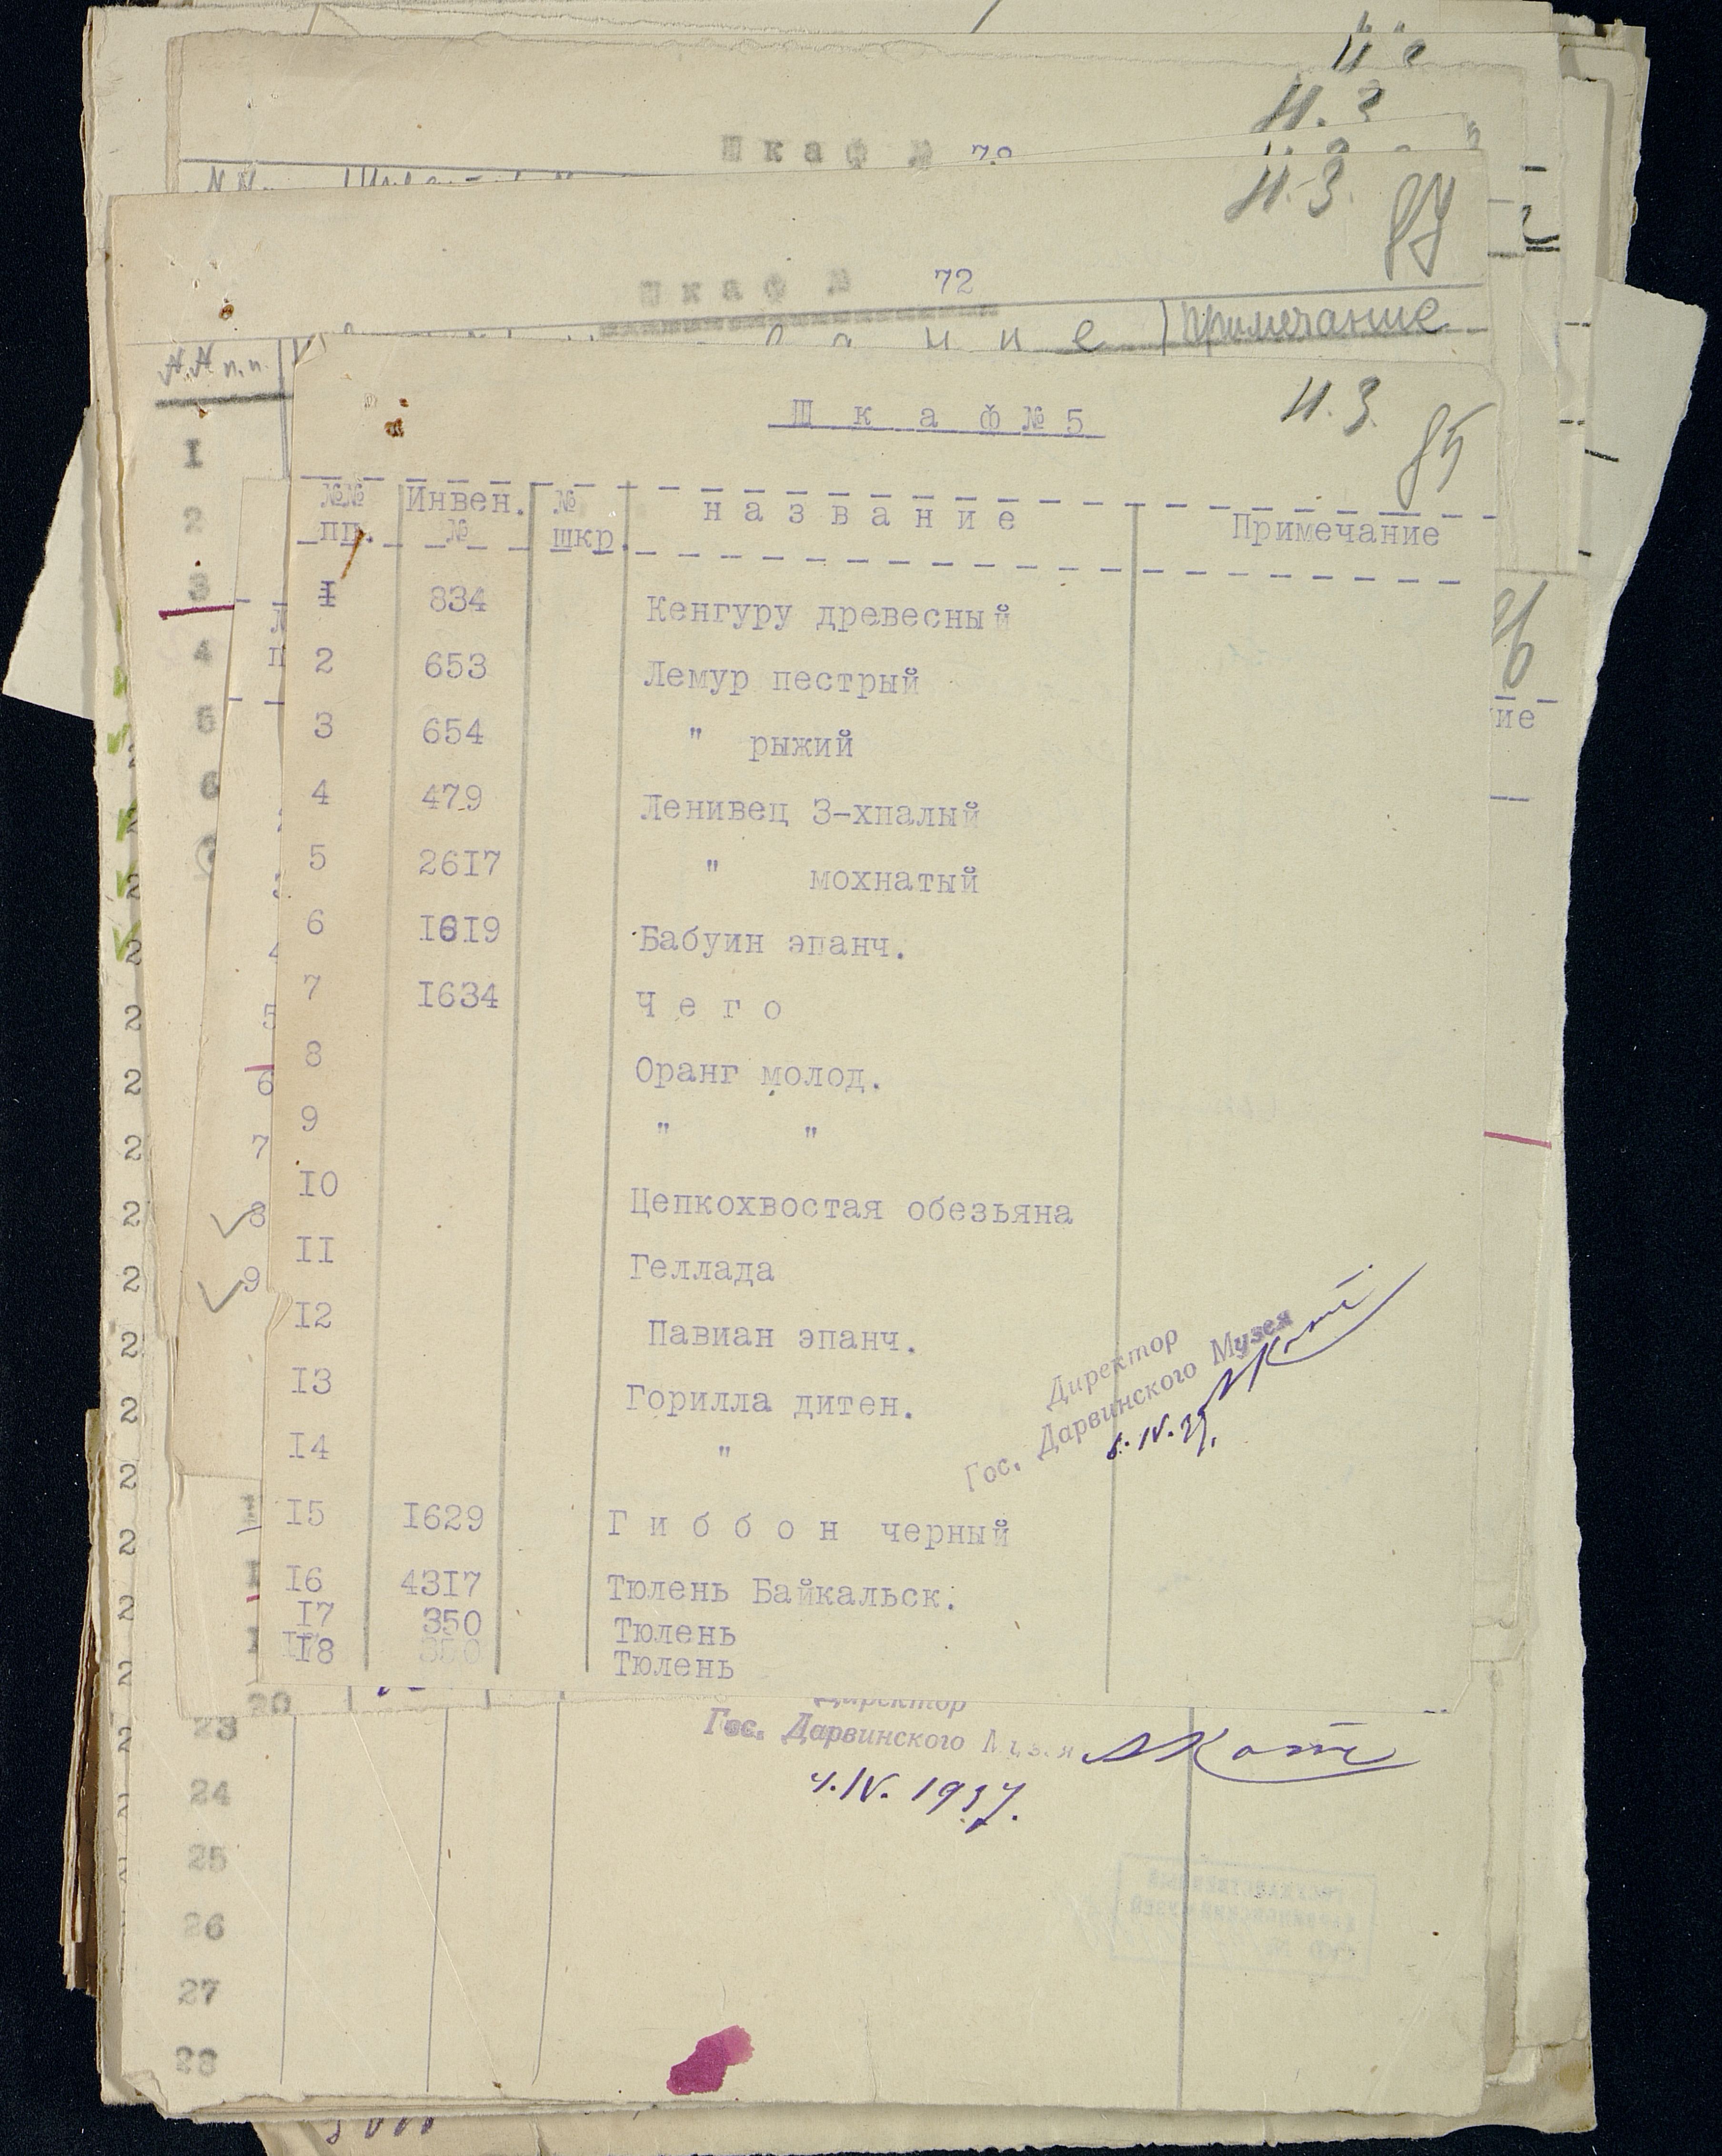 Шкаф №
Н.З.
Шкаф № 72
Примечание
№№ п.п.
Н.З. 85
Шкаф № 5
№№ пп. Инвен. № № шкр. название Примечание
1 834 Кенгуру древесный
2 653 Лемур пестрый
3 654 " рыжий
4 479 Ленивец 3-хпалый
5 2617 " мохнатый
6 1619 Бабуин эпанч.
7 1634 Чего
8 Оранг молод.
9 " "
10 Цепкохвостая обезьяна
11 Геллада
12 Павиан эпанч.
13 Горилла дитен.
14 "
15 1629 Гиббон черный
16 4317 Тюлень Байкальск.
17 350 Тюлень
18 350 Тюлень
Директор
Гос. Дарвинского Музея
Директор
Гос. Дарвинского Музея
4.IV.1937.
1
2
3
4
5
6
20
23
24
25
26
27
28